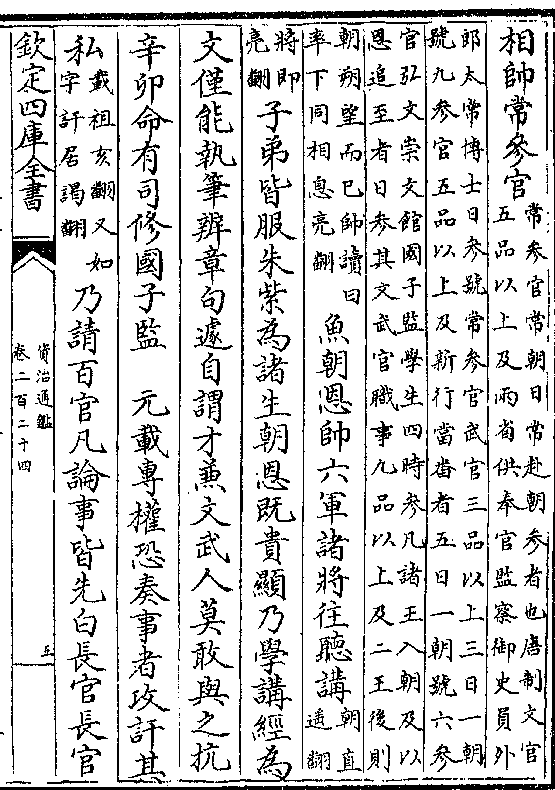 相帥常參官常參官常朝日常赴朝參者也唐制文官
五品以上及兩省供奉官監察御史員外
郎太常博士日參號常參官武官三品以上三日一朝
號九參官五品以上及新行當番者五日一朝號六參
官弘文崇文館國子監學生四時參凡諸王入朝及以
恩追至者日參其文武官職事九品以上及二王後則
朝朔望而已帥讀曰
率下同相息亮翻
魚朝恩帥六軍諸將往聽講朝直
遥翻
將即
亮翻
子弟皆服朱紫為諸生朝恩既貴顯乃學講經為
文僅能執筆辨章句遽自謂才兼文武人莫敢與之抗
辛卯命有司修國子監　元載專權恐奏事者攻訐其
私載祖亥翻又如
字訐居謁翻
乃請百官凡論事皆先白長官長官
欽定四庫全書
資治通鑑
卷二百二十四
五